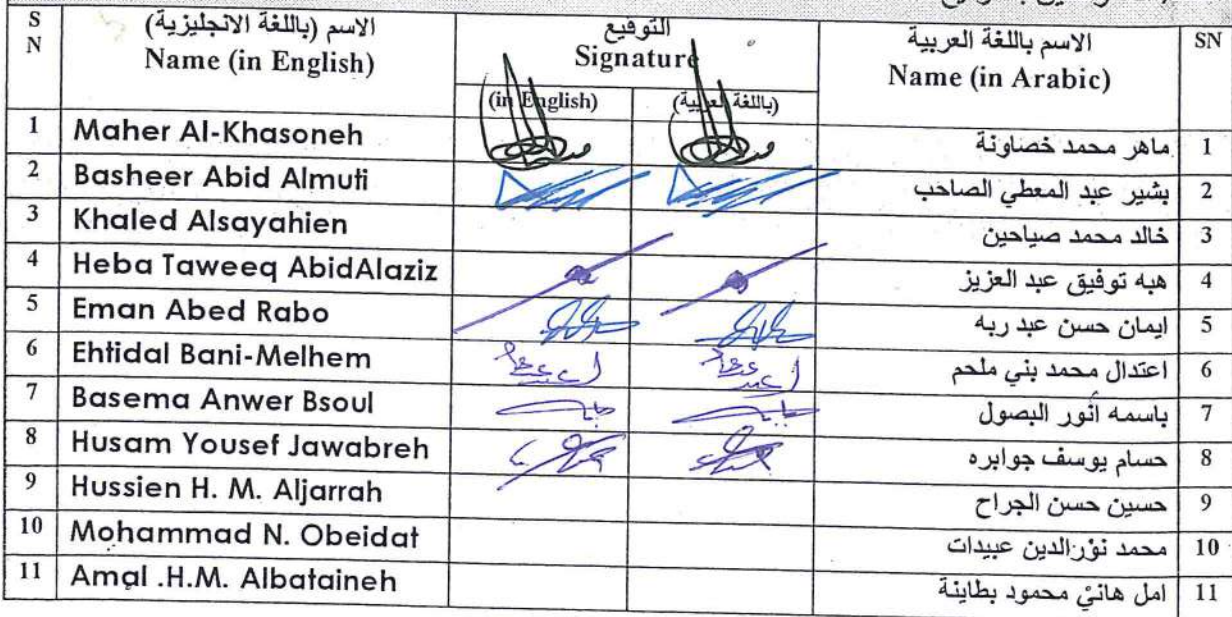 S N الاسم (باللغة الانجليزية) Name (in English) التوقيع Signature الاسم باللغة العربية Name (in Arabic) SN
(in English) (باللغة العربية)
1 Maher Al-Khasoneh ماهر محمد خصاونة 1
2 Basheer Abid Almuti بشير عبد المعطي الصاحب 2
3 Khaled Alsayahien خالد محمد صياحين 3
4 Heba Taweeq AbidAlaziz هبه توفيق عبد العزيز 4
5 Eman Abed Rabo ايمان حسن عبد ربه 5
6 Ehtidal Bani-Melhem اعتدال محمد بني ملحم 6
7 Basema Anwer Bsoul باسمه أنور البصول 7
8 Husam Yousef Jawabreh حسام يوسف جوابره 8
9 Hussien H. M. Aljarrah حسين حسن الجراح 9
10 Mohammad N. Obeidat محمد نور الدين عبيدات 10
11 Amal .H.M. Albataineh امل هاني محمود بطاينة 11